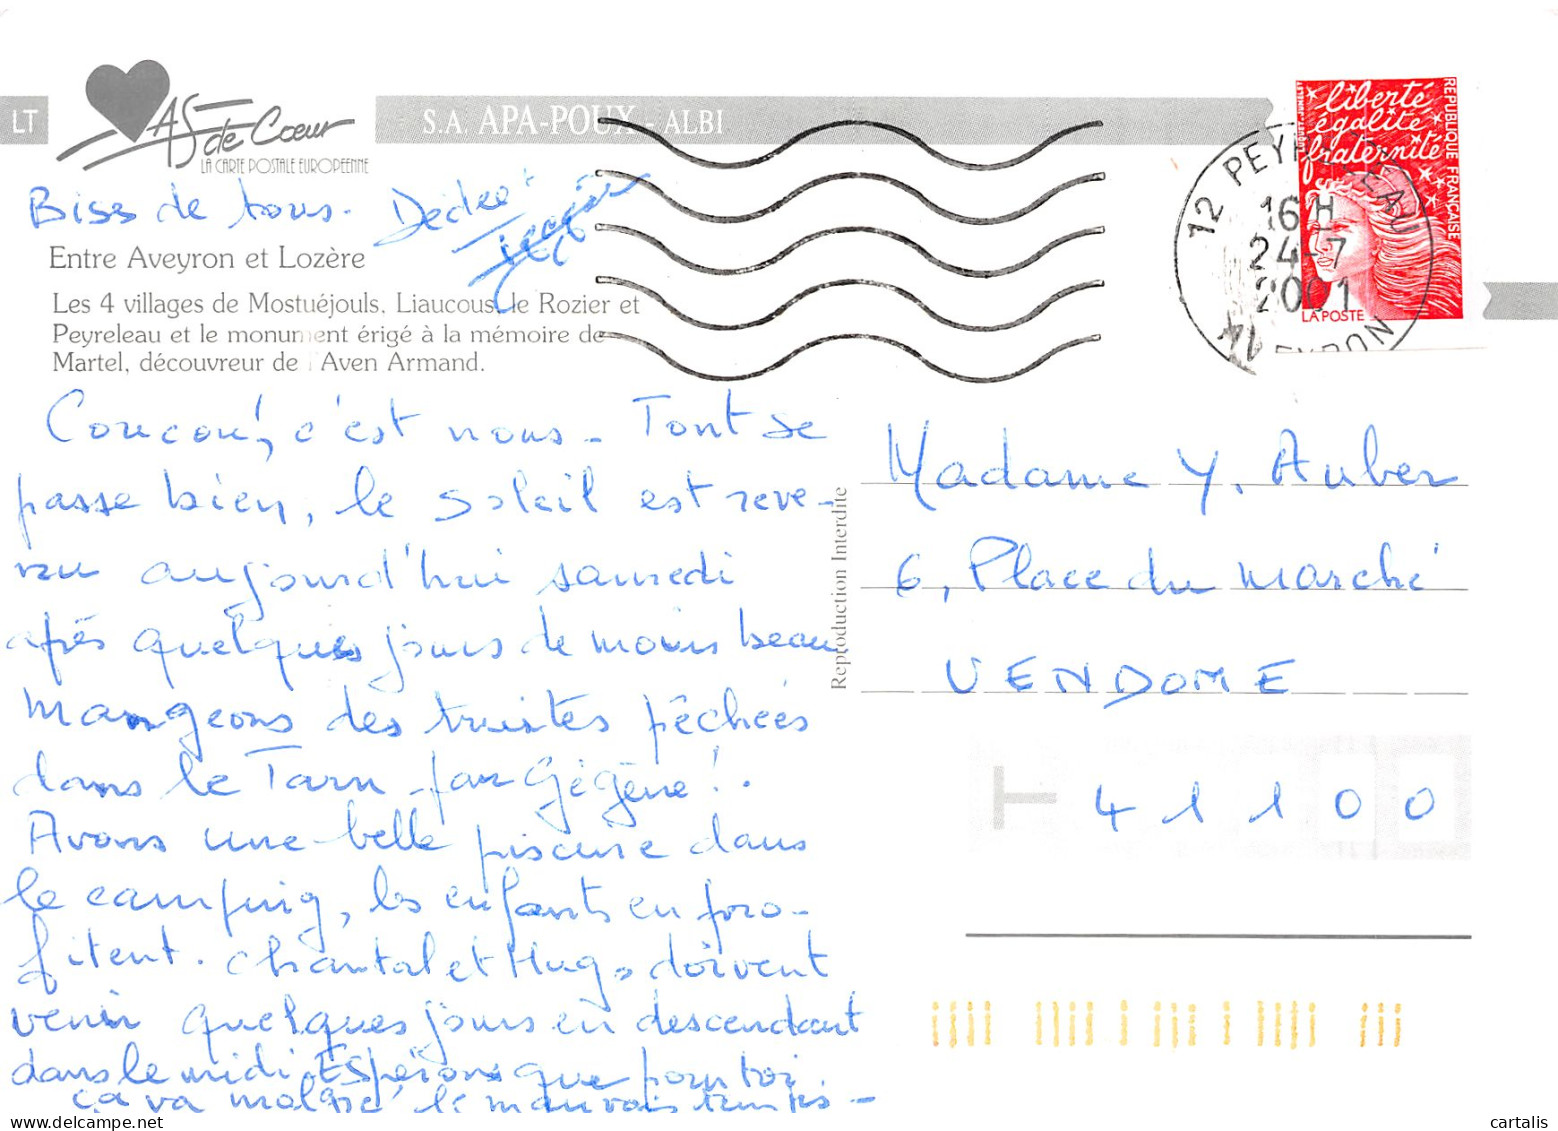 LT
As de Cœur
LA CARTE POSTALE EUROPÉENNE
S.A. APA-POUX - ALBI
liberté
égalité
fraternité
RÉPUBLIQUE FRANÇAISE
LA POSTE
12 PEYRELEAU
16 H
24-7
2001
AVEYRON
Bises de tous. Dédée
Entre Aveyron et Lozère
Les 4 villages de Mostuéjouls, Liaucous, le Rozier et
Peyreleau et le monument érigé à la mémoire de
Martel, découvreur de l'Aven Armand.
Coucou!, c'est nous - Tout se
passe bien, le soleil est reve-
nu aujourd'hui samedi
après quelques jours de moins beau
mangeons des truites pêchées
dans le Tarn par Gégène!.
Avons une belle piscine dans
le camping, les enfants en pro-
fitent. Chantal et Hugo doivent
venir quelques jours en descendant
dans le midi. Espérons que pour toi
ça va malgré le mauvais temps -
Reproduction Interdite
Madame Y. Auber
6, Place du marché
VENDOME
41100
cartalis